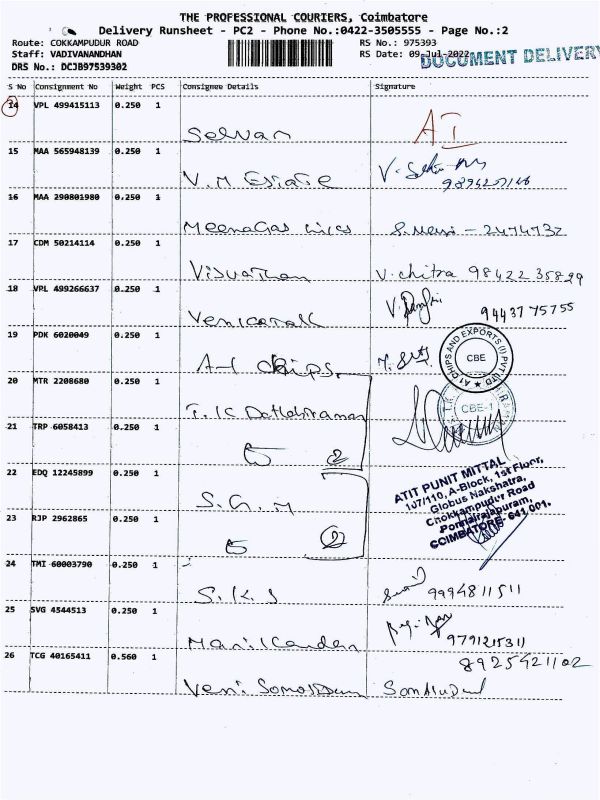 THE PROFESSIONAL COURIERS, Coimbatore
Delivery Runsheet - PC2 - Phone No.:0422-3505555 - Page No.:2
Route: COKKAMPUDUR ROAD RS No.: 975393
Staff: VADIVANANDHAN RS Date: 09-Jul-2022
DOCUMENT DELIVERY
DRS No.: DCJB97539302
S No Consignment No Weight PCS Consignee Details Signature
14 VPL 499415113 0.250 1
Selvan AI
15 MAA 565948139 0.250 1
V.M Estate
16 MAA 290801980 0.250 1
MeenaGas S.mani - 2474732
17 CDM 50214114 0.250 1
V.chitra 98422 35899
18 VPL 499266637 0.250 1
94437 75755
19 PDK 6020049 0.250 1
A-1 chips.
A1 CHIPS AND EXPORTS (I) PVT LTD
CBE
20 MTR 2208680 0.250 1
CBE-1
21 TRP 6058413 0.250 1
2
22 EDQ 12245899 0.250 1
S.G.M
ATIT PUNIT MITTAL
107/110, A-Block, 1st Floor,
Globus Nakshatra,
Chokkampudur Road
Ponnaiyarajapuram,
COIMBATORE-641 001.
23 RJP 2962865 0.250 1
2
24 TMI 60003790 0.250 1
S.K.S 9994811511
25 SVG 4544513 0.250 1
Manikandan 9791215311
26 TCG 40165411 0.560 1 8925921102
Veni